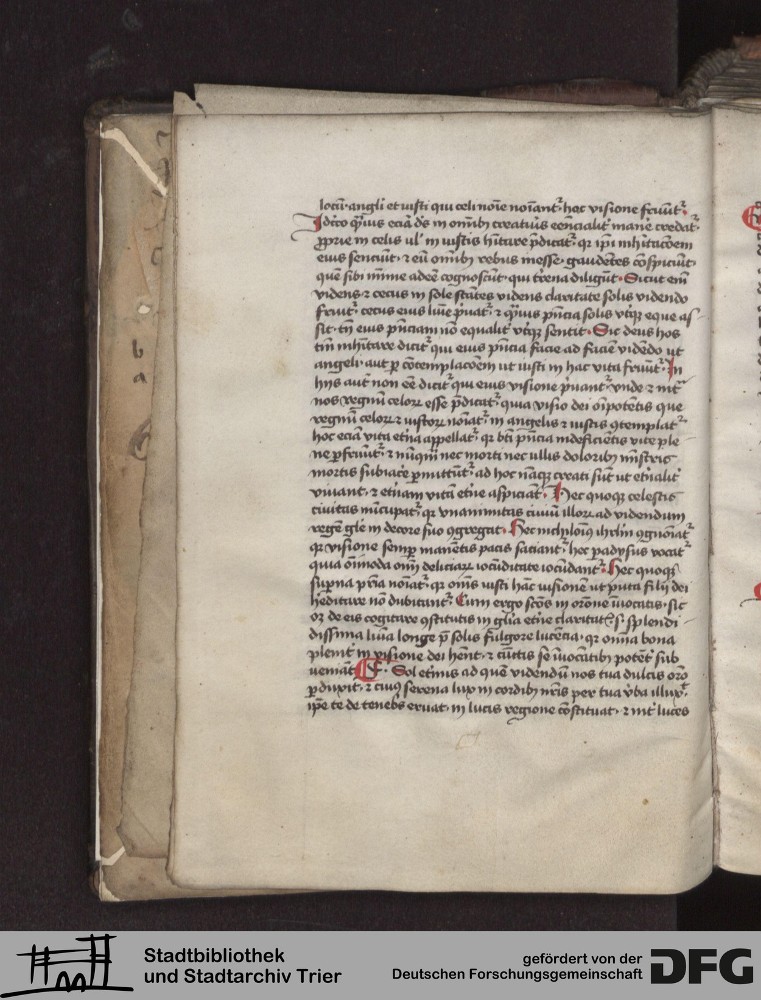 locū angeli et iusti qui celi noīe noīant᷑ hac visione fruūt᷑
Idcirco q̄muis eciā ds̄ in om̄ibꝫ creaturis eēncialit᷑ manē credat᷑
ꝓprie in celis ul̓ in iustis hītare p̄dicat᷑ qꝛ ip̄i inhītacōem
eius senciūt ⁊ eū om̄ibꝫ rebus inesse gaudētes cōspiciūt
quē sibi mīme adeē cognoscūt qui t̓rena diligūt Sicut em̄
videns ⁊ cecus in sole stātes videns claritate solis videndo
fruit᷑ cecus eius lum̄e p̄uat᷑ ⁊ q̄muis pn̄cia solis vt̓qꝫ eque as
sit tn̄ eius pn̄ciam nō equalit᷑ vt̓qꝫ sentit Sic deus hos
tm̄ inhītare dicit᷑ qui eius pn̄cia facie ad faciē vidēdo ut
angeli aut ꝑ cōtemplacōem ut iusti in hac vita fruūt᷑ In
hijs aut̄ non eē dicit᷑ qui eius visione p̄uant᷑ vnde ⁊ int᷑
nos regnū celoꝝ esse p̄dicat᷑ quia visio dei om̄ipotētis que
regnū celoꝝ ⁊ iustoꝝ noīat᷑ in angelis ⁊ iustis ꝯtemplat᷑
hoc eciā vita et̓na appellat᷑ qꝛ bt̄i pn̄cia indeficiētis vite ple
ne ꝑfruūt᷑ ⁊ nūqm̄ nec morti nec ullis doloribꝫ
mortis subiacē ꝑmittūt᷑ ad hoc nāqꝫ creati sūt ut et̓nalit᷑
viuant ⁊ et̓nam vitā et̓ne aspiciāt Hec quoqꝫ celestis
ciuitas nūcupat᷑ qꝛ vnanimitas ciuiū illoꝝ ad videndum
regē gl̄e in decore suo ꝯgregat᷑ Hec ihrl̄m ꝯgnoīat᷑
qꝛ visione semꝑ manētis pacis saciant᷑ hec padysus vocat᷑
quia om̄imoda om̄i deliciaꝝ iocūditate iocūdant᷑ Hec quoqꝫ
superna pr̄ia noīat᷑ qꝛ om̄s iusti hāc visionē ut puta filij dei
hēditare nō dubitant᷑ Cum ergo scōs in orōne īuocatis sic
oꝫ de eis cogitare ꝯstitutis in gl̄ia et̓ne claritat̄ ꝫ splendi
dissima lūia longe p̄ solis fulgore lucēcia qꝛ om̄ia bona
plenit̓ in visione dei hēnt ⁊ cūctis se īuocātibꝫ potēt᷑ sub
ueniāt Sol et̓nus ad quē videndū nos tua dulcis orō
ꝑduxit ⁊ cuiꝰ serena lux in cordibꝫ nr̄is per tua v̓ba illuxit
ip̄e te de teneb̄s eruat in lucis regione cōstituat ⁊ int᷑ luces
Stadtbibliothek
und Stadtarchiv Trier
gefördert von der
Deutschen Forschungsgemeinschaft
DFG